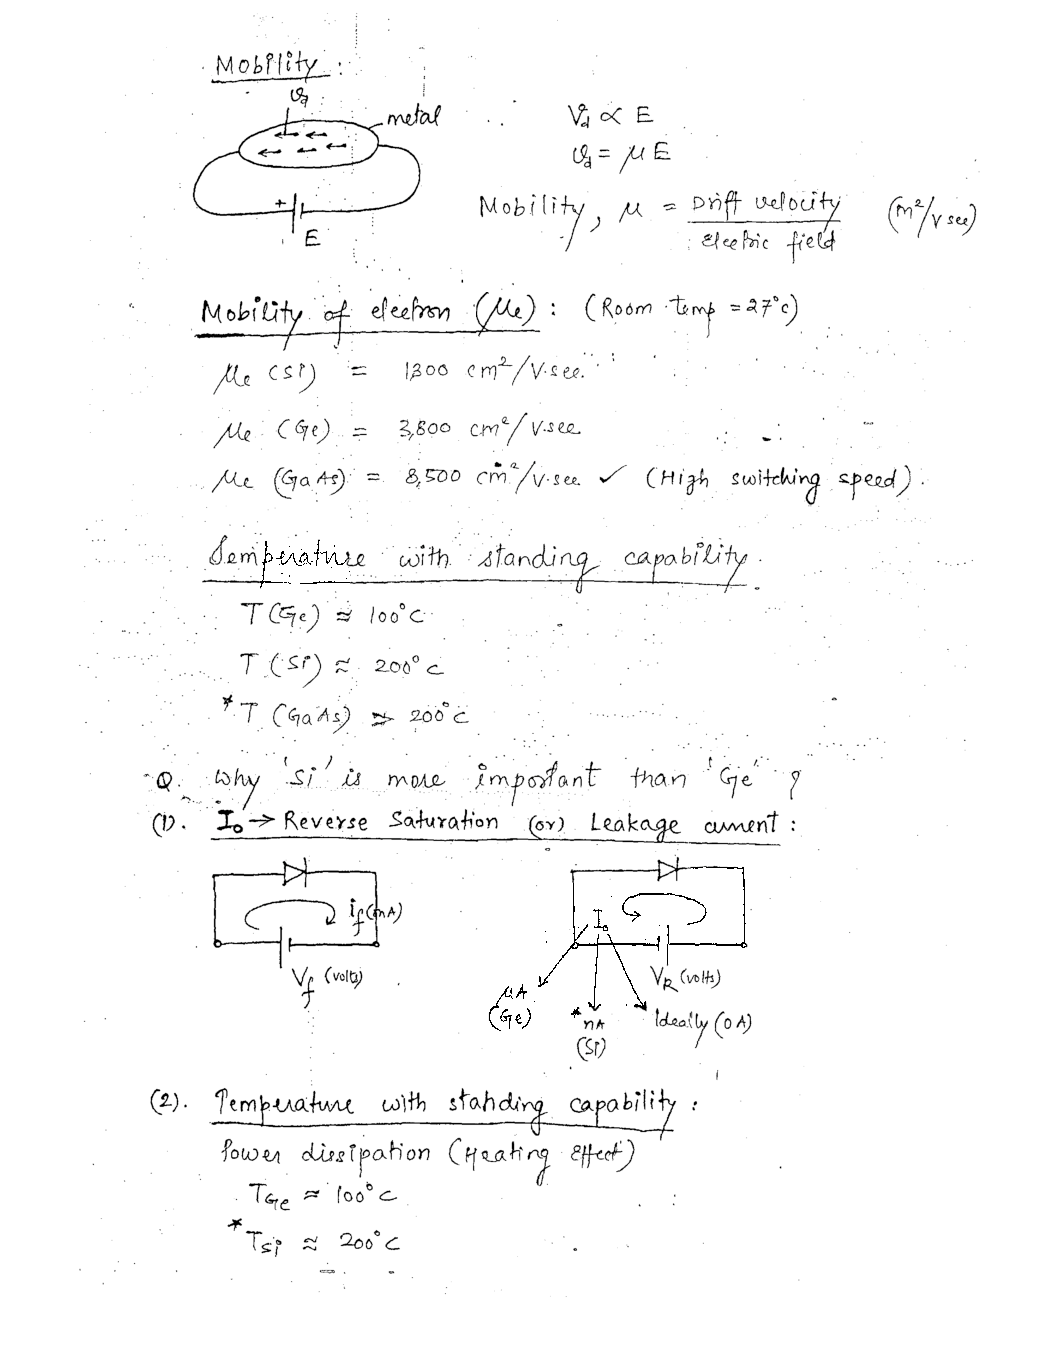 Mobility :
vd
metal
Vd ∝ E
vd = μ E
+
E
Mobility, μ = Drift velocity / Electric field (m²/v sec)
Mobility of electron (μe) : (Room temp = 27°c)
μe (Si) = 1300 cm²/V.sec.
μe (Ge) = 3,800 cm²/V.sec
μe (GaAs) = 8,500 cm²/V.sec ✓ (High switching speed).
Temperature with standing capability.
T (Ge) ≈ 100°C
T (Si) ≈ 200°C
* T (GaAs) ≈> 200°C
Q. Why 'Si' is more important than 'Ge' ?
(1). Io → Reverse Saturation (or) Leakage current :
if (mA)
Vf (volts)
Io
VR (volts)
μA
(Ge)
* nA
(Si)
Ideally (0 A)
(2). Temperature with standing capability :
Power dissipation (Heating Effect)
TGe ≈ 100°C
* TSi ≈ 200°C